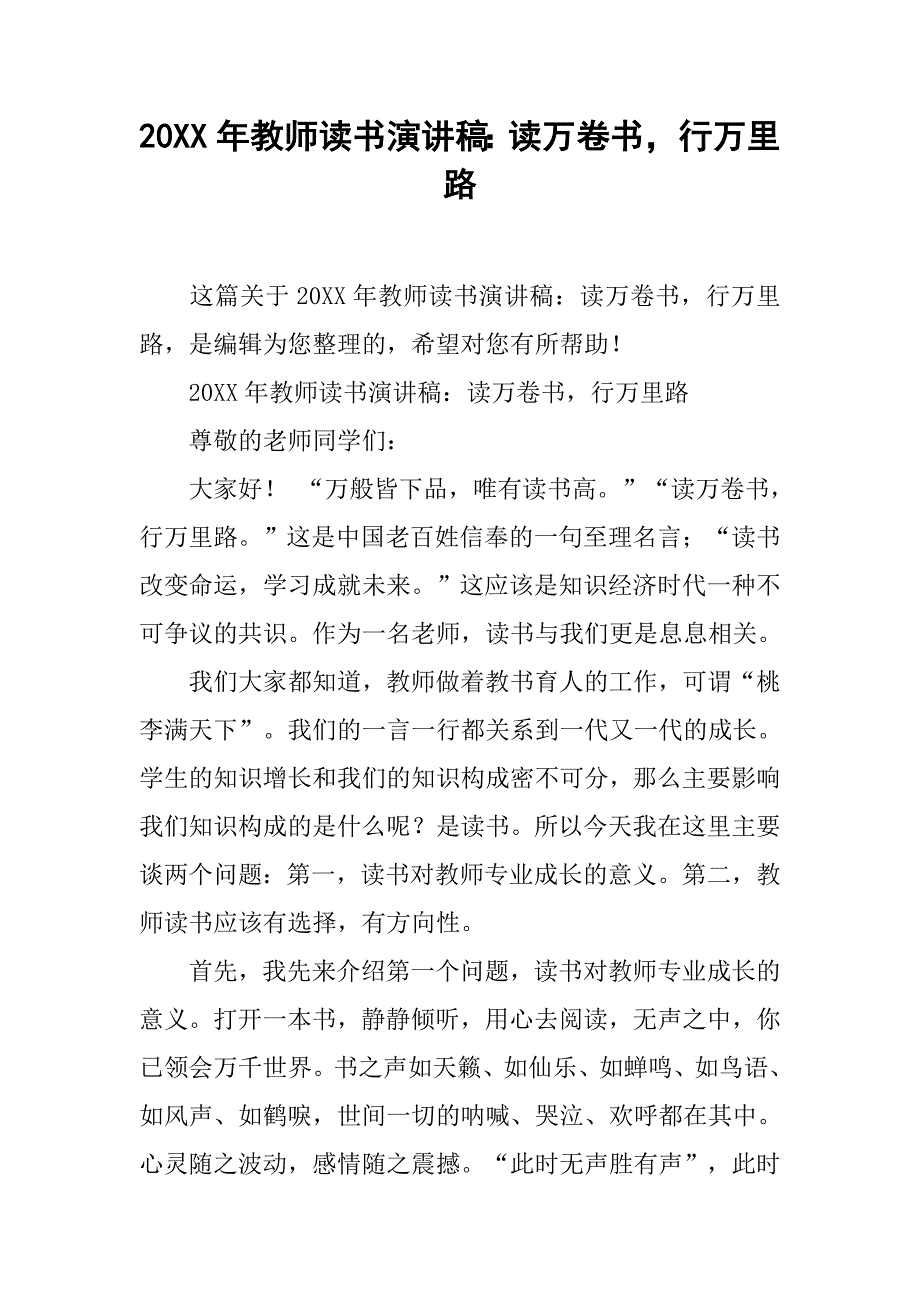 20XX 年教师读书演讲稿：读万卷书，行万里
路
这篇关于 20XX 年教师读书演讲稿：读万卷书，行万里
路，是编辑为您整理的，希望对您有所帮助！
20XX 年教师读书演讲稿：读万卷书，行万里路
尊敬的老师同学们：
大家好！ “万般皆下品，唯有读书高。”“读万卷书，
行万里路。”这是中国老百姓信奉的一句至理名言；“读书
改变命运，学习成就未来。”这应该是知识经济时代一种不
可争议的共识。作为一名老师，读书与我们更是息息相关。
我们大家都知道，教师做着教书育人的工作，可谓“桃
李满天下”。我们的一言一行都关系到一代又一代的成长。
学生的知识增长和我们的知识构成密不可分，那么主要影响
我们知识构成的是什么呢？是读书。所以今天我在这里主要
谈两个问题：第一，读书对教师专业成长的意义。第二，教
师读书应该有选择，有方向性。
首先，我先来介绍第一个问题，读书对教师专业成长的
意义。打开一本书，静静倾听，用心去阅读，无声之中，你
已领会万千世界。书之声如天籁、如仙乐、如蝉鸣、如鸟语、
如风声、如鹤唳，世间一切的呐喊、哭泣、欢呼都在其中。
心灵随之波动，感情随之震撼。“此时无声胜有声”，此时